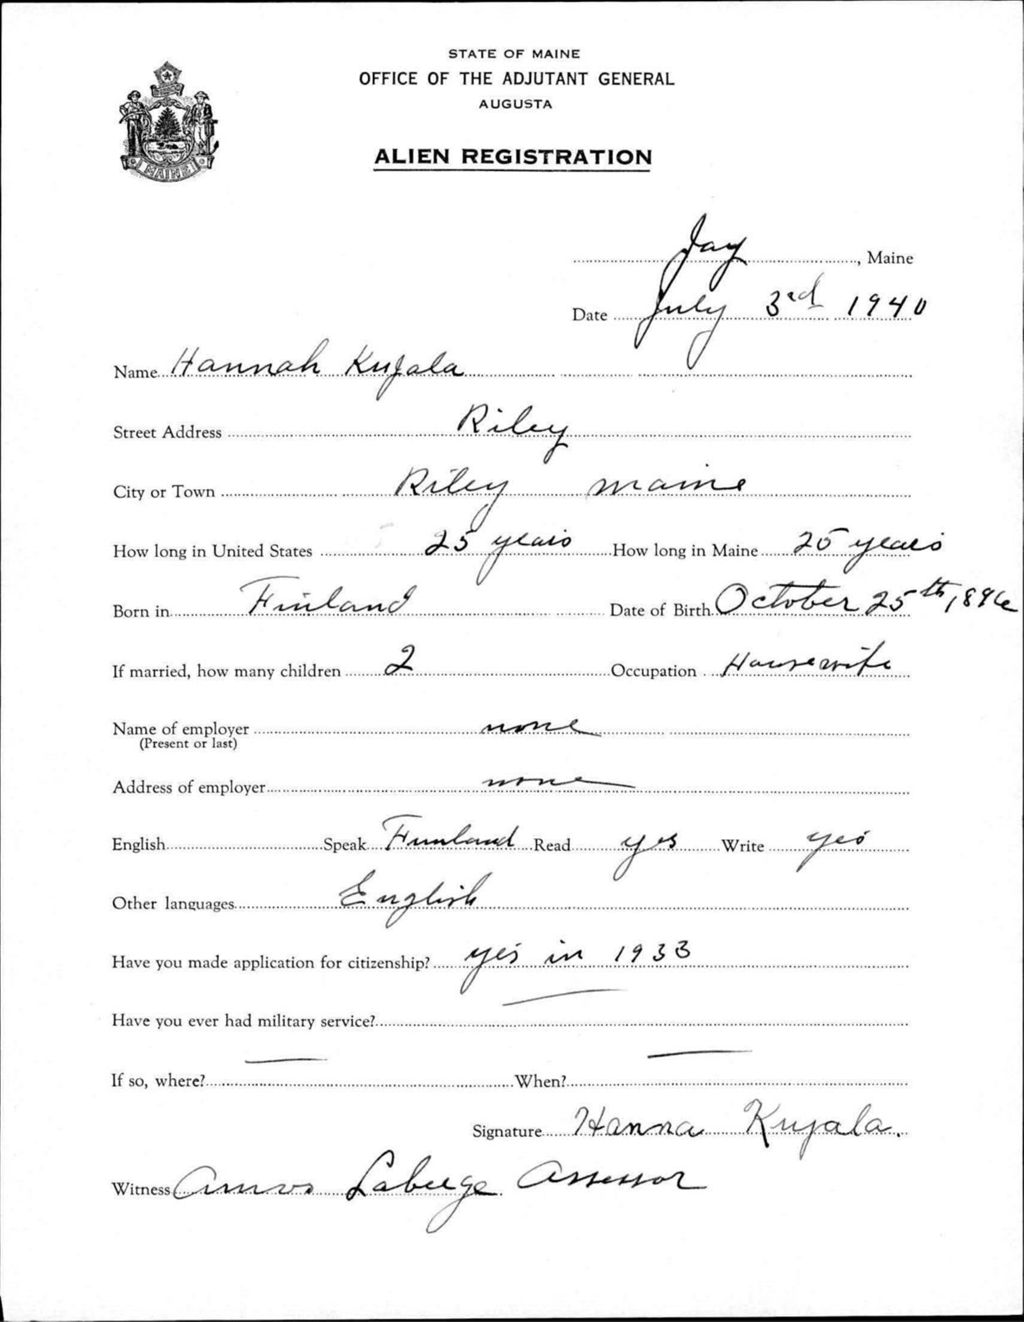 STATE OF MAINE
OFFICE OF THE ADJUTANT GENERAL
AUGUSTA
ALIEN REGISTRATION
MAINE
Jay, Maine
Date July 3rd 1940
Name Hannah Kujala
Street Address Riley
City or Town Riley Maine
How long in United States 25 years How long in Maine 25 years
Born in Finland Date of Birth October 25th, 1896
If married, how many children 2 Occupation Housewife
Name of employer none
(Present or last)
Address of employer none
English Speak Finland Read yes Write yes
Other languages English
Have you made application for citizenship? yes in 1933
Have you ever had military service? —
If so, where? — When? —
Signature Hanna Kujala.
Witness Amos Laberge Assessor